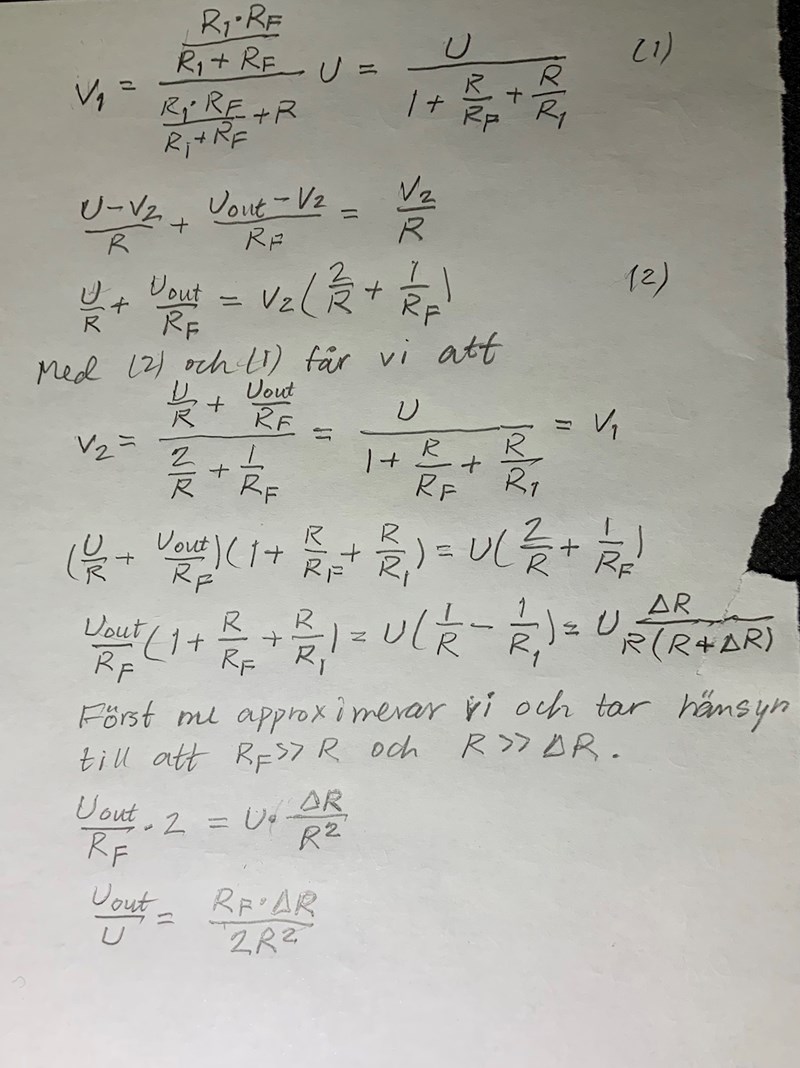 V₁ = ((R₁·R_F)/(R₁+R_F))/((R₁·R_F)/(R₁+R_F) + R) U = U/(1 + R/R_F + R/R₁) (1)
(U-V₂)/R + (U_out-V₂)/R_F = V₂/R
U/R + U_out/R_F = V₂(2/R + 1/R_F) (2)
Med (2) och (1) får vi att
V₂ = (U/R + U_out/R_F)/(2/R + 1/R_F) = U/(1 + R/R_F + R/R₁) = V₁
(U/R + U_out/R_F)(1 + R/R_F + R/R₁) = U(2/R + 1/R_F)
U_out/R_F (1 + R/R_F + R/R₁) = U(1/R - 1/R₁) = U ΔR/(R(R+ΔR))
Först nu approximerar vi och tar hänsyn
till att R_F >> R och R >> ΔR.
U_out/R_F · 2 = U · ΔR/R²
U_out/U = (R_F·ΔR)/(2R²)